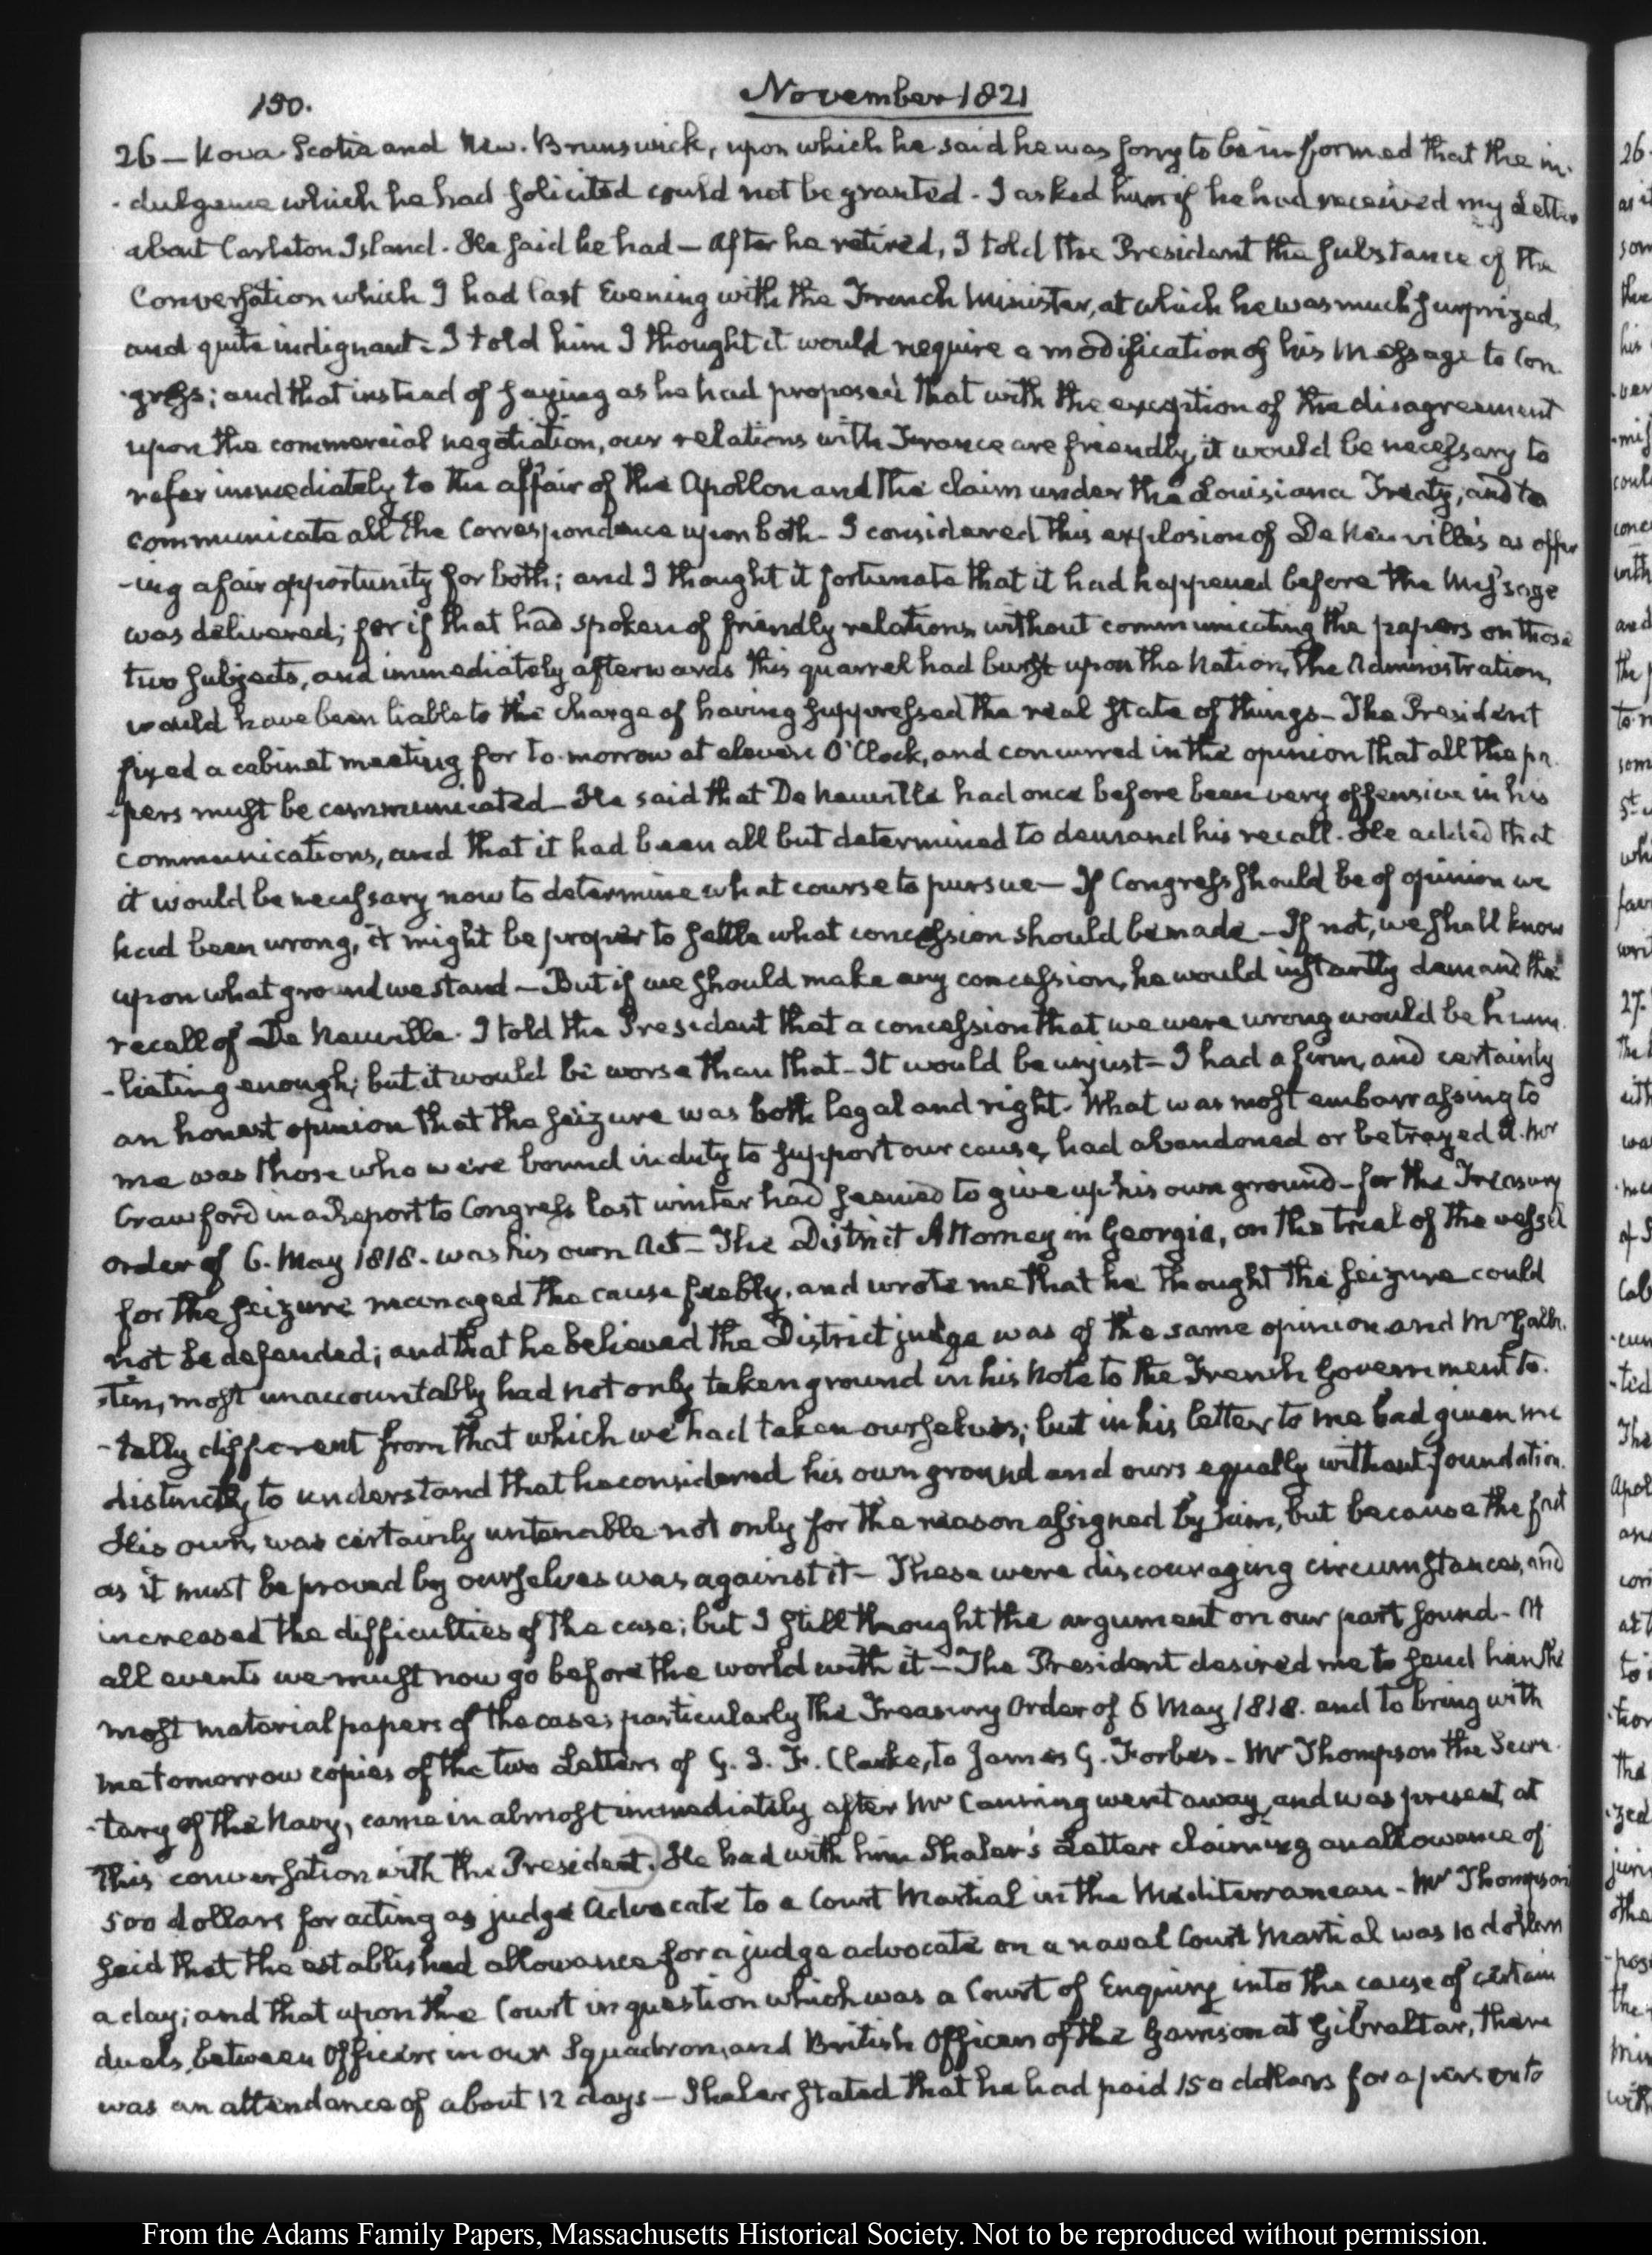 150.
November 1821
26 — Nova-Scotia and New-Brunswick, upon which he said he was sorry to be informed that the in-
-dulgence which he had solicited could not be granted. I asked him if he had received my Letter
about Carleton Island. He said he had — After he retired, I told the President the substance of the
Conversation which I had last Evening with the French Minister, at which he was much surprized,
and quite indignant. I told him I thought it would require a modification of his Message to Con-
-gress; and that instead of saying as he had proposed that with the exception of the disagreement
upon the commercial negotiation, our relations with France are friendly, it would be necessary to
refer immediately to the affair of the Apollon and the claim under the Louisiana Treaty, and to
communicate all the Correspondence upon both. I considered this explosion of De Neuville's as offer-
-ing a fair opportunity for both; and I thought it fortunate that it had happened before the Message
was delivered; for if that had spoken of friendly relations without communicating the papers on those
two subjects, and immediately afterwards this quarrel had burst upon the Nation, the Administration,
would have been liable to the charge of having suppressed the real state of things — The President
fixed a cabinet meeting for to-morrow at eleven O'Clock, and concurred in the opinion that all the pa-
-pers must be communicated — He said that De Neuville had once before been very offensive in his
communications, and that it had been all but determined to demand his recall. He added that
it would be necessary now to determine what course to pursue — If Congress should be of opinion we
had been wrong, it might be proper to settle what concession should be made — If not, we shall know
upon what ground we stand — But if we should make any concession, he would instantly demand the
recall of De Neuville. I told the President that a concession that we were wrong would be humi-
-liating enough; but it would be worse than that — It would be unjust — I had a firm, and certainly
an honest opinion that the seizure was both legal and right. What was most embarrassing to
me was those who were bound in duty to support our cause, had abandoned or betrayed it. Mr
Crawford in a Report to Congress last winter had seemed to give up his own ground — for the Treasury
order of 6. May 1818. was his own Act — The District Attorney in Georgia, on the trial of the vessel
for the seizure managed the cause feebly, and wrote me that he thought the seizure could
not be defended; and that he believed the District judge was of the same opinion and Mr Galla-
-tin, most unaccountably had not only taken ground in his Note to the French Government to-
-tally different from that which we had taken ourselves; but in his letter to me had given me
distinctly to understand that he considered his own ground and ours equally without foundation.
His own, was certainly untenable not only for the reason assigned by him, but because the fact
as it must be proved by ourselves was against it — These were discouraging circumstances, and
increased the difficulties of the case; but I still thought the argument on our part sound. At
all events we must now go before the world with it — The President desired me to send him the
most material papers of the case; particularly the Treasury Order of 6 May 1818. and to bring with
me tomorrow copies of the two Letters of G. I. F. Clarke, to James G. Forbes — Mr Thompson the Secre-
-tary of the Navy, came in almost immediately after Mr Canning went away, and was present at
this conversation with the President. He had with him Shaler's Letter claiming an allowance of
500 dollars for acting as judge Advocate to a Court Martial in the Mediterranean — Mr Thompson
said that the established allowance for a judge advocate on a naval Court Martial was 10 dollars
a day; and that upon the Court in question which was a Court of Enquiry into the cause of certain
duels, between Officers in our Squadron, and British Officers of the Garrison at Gibraltar, there
was an attendance of about 12 days — Shaler stated that he had paid 150 dollars for a person to
From the Adams Family Papers, Massachusetts Historical Society. Not to be reproduced without permission.